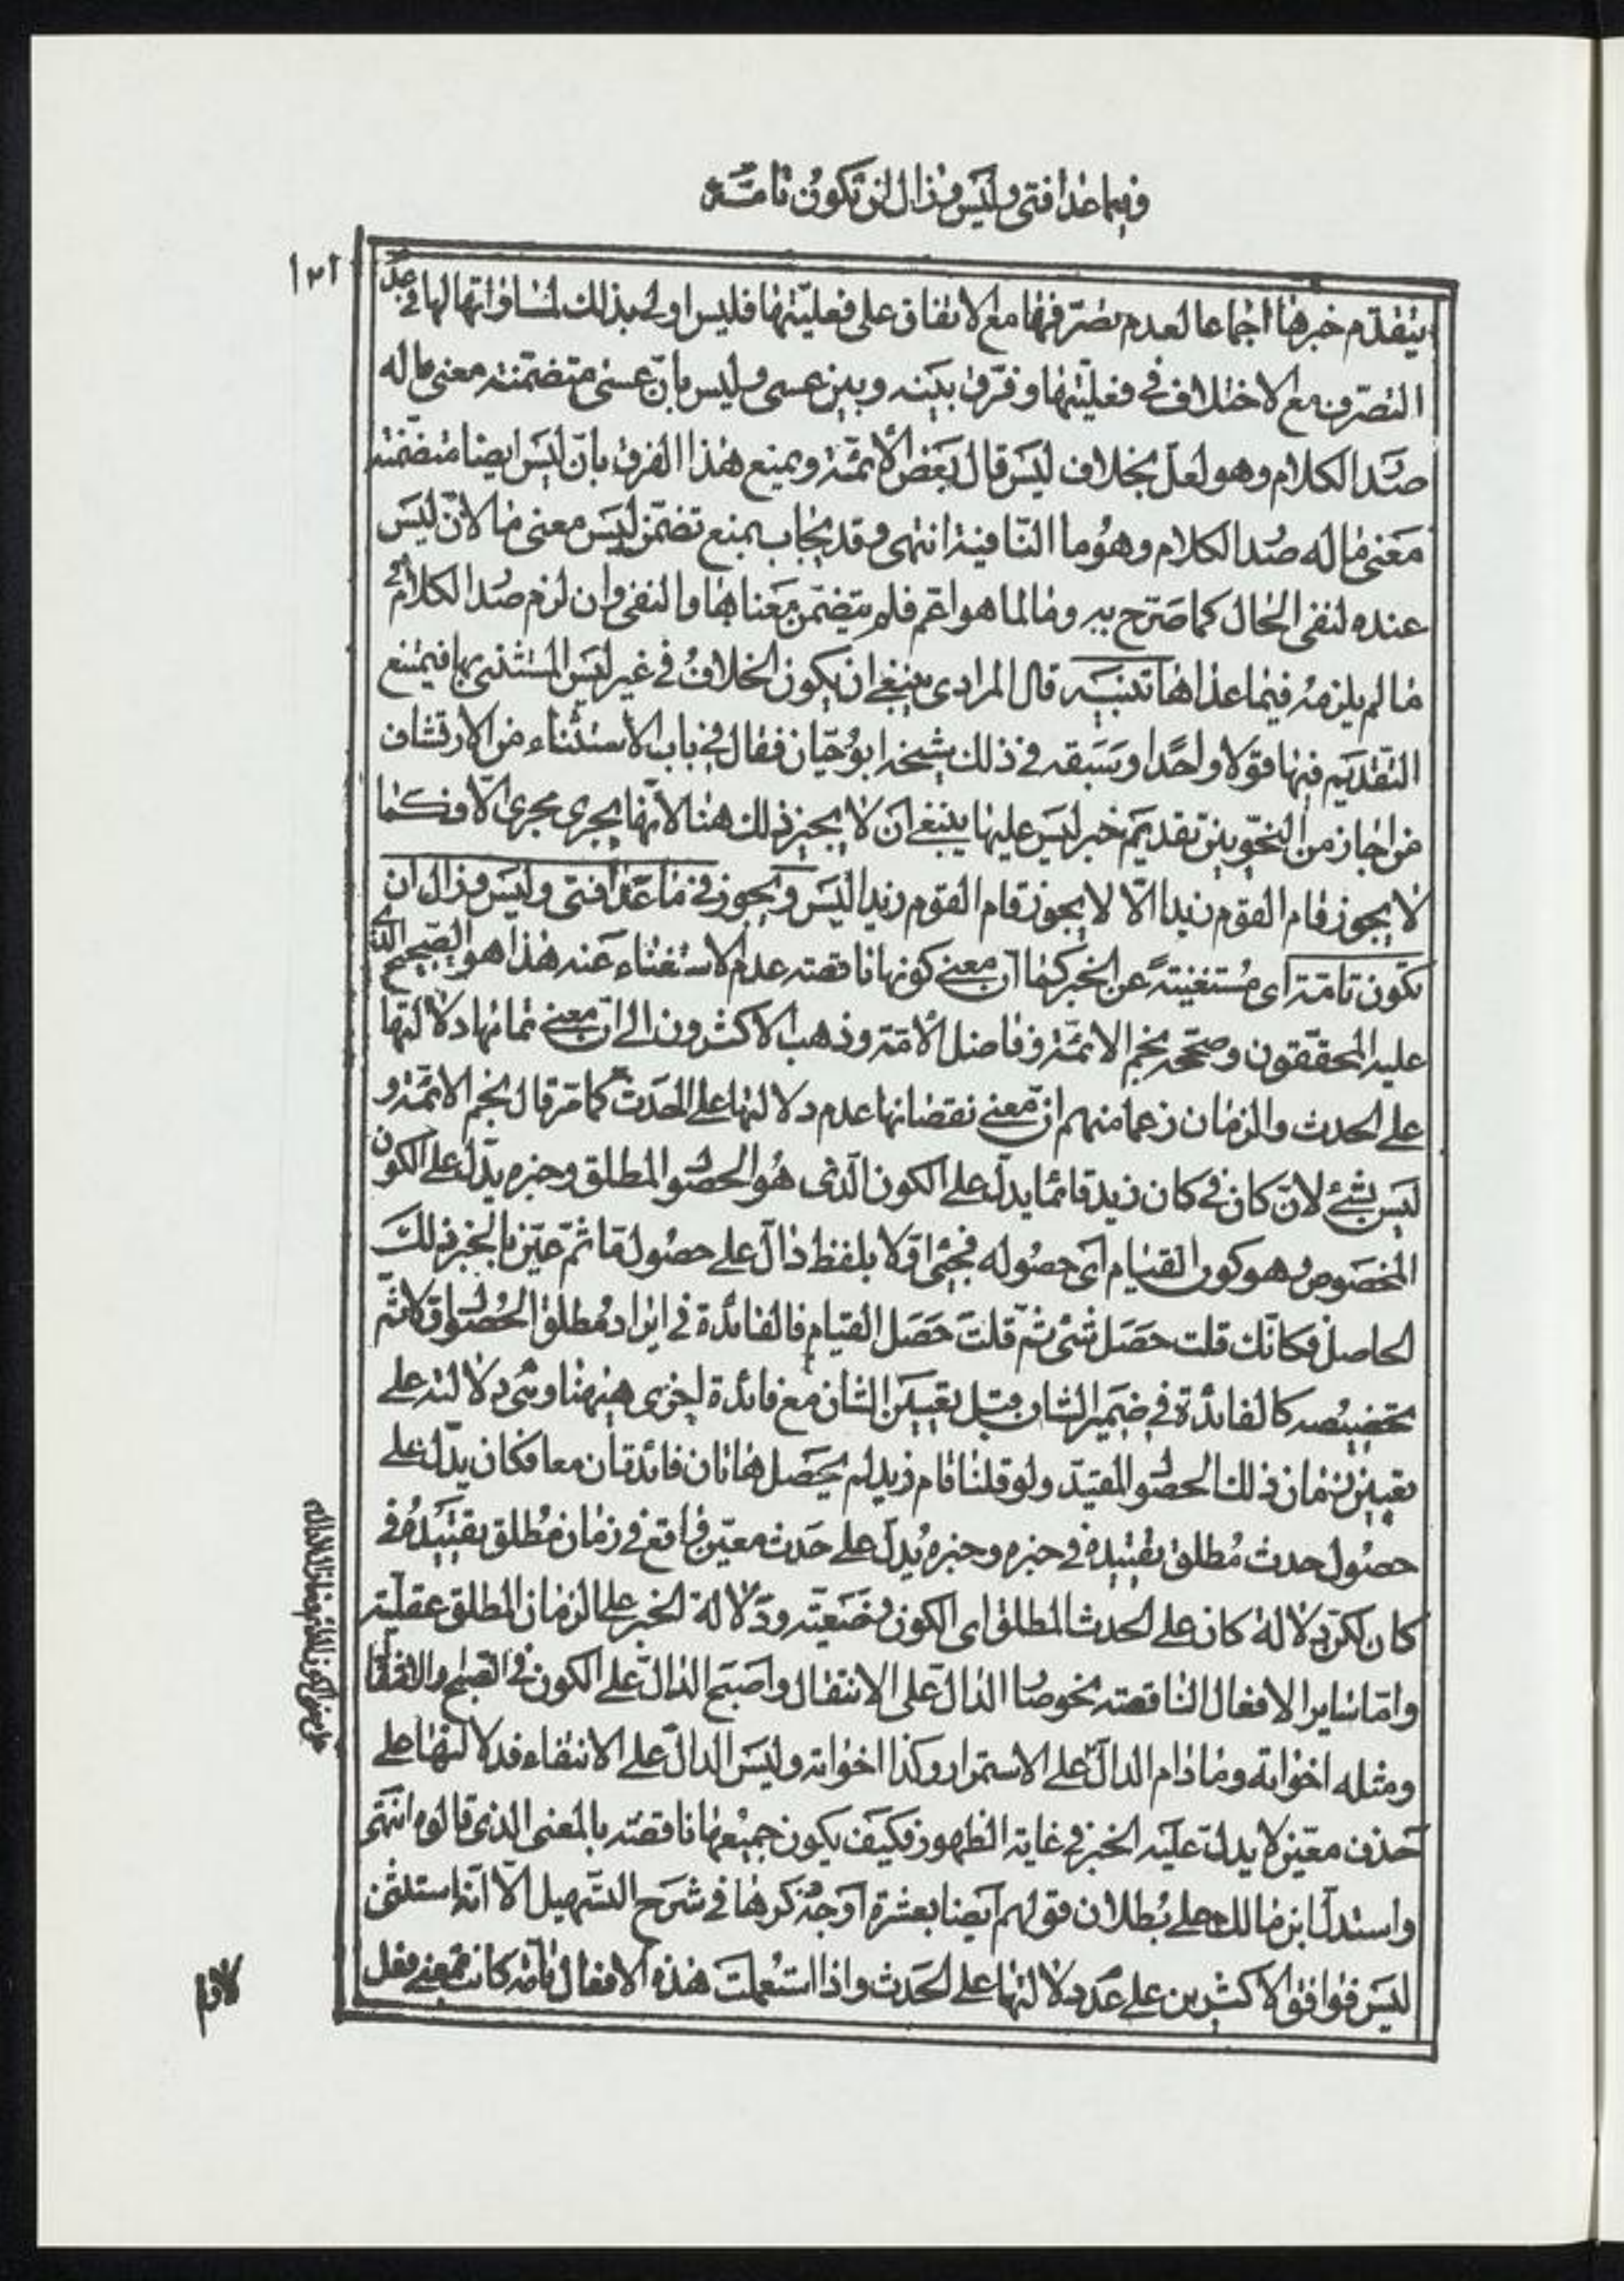 فيما عدا فتى وليس وزال ان تكون تامّة
١٢١
يتقدّم خبرها اجماعا لعدم تصرّفها مع الاتفاق على فعليّتها فليس اولى بذلك لمساواتها لها في عدم
التصرّف مع الاختلاف في فعليّتها وفرّق بينه وبين عسى وليس بانّ عسى متضمّنة معنى ما له
صدر الكلام وهو لعلّ بخلاف ليس قال بعض الأئمّة ويمنع هذا الفرق بانّ ليس ايضا متضمّنة
معنى ما له صدر الكلام وهو ما النّافية انتهى وقد يجاب بمنع تضمّن ليس معنى ما لانّ ليس
عنده لنفى الحال كما صرّح به وما لما هو اعّم فلم يتضمّن معناها والنفى وان لزم صدر الكلام في
ما لم يلزمه فيما عداها تنبيه قال المرادى ينبغي ان يكون الخلاف في غير ليس المستثنى بها فيمتنع
التقديم فيها قولا واحدا وسبقه في ذلك شيخه ابو حيّان فقال في باب الاستثناء من الارتشاف
من اجاز من النحّويين تقديم خبر ليس عليها ينبغي ان لا يجيز ذلك هنا لانّها يجرى مجرى الّا فكما
لا يجوز قام القوم زيدا الّا لا يجوز قام القوم زيدا ليس ويجوز في ما عدا فتى وليس وزال ان
تكون تامّة اى مستغنية عن الخبر كما انّ معنى كونها ناقصة عدم الاستغناء عنه هذا هو الصّحيح الذى
عليه المحقّقون وصحّحه نجم الائمّة وفاضل الأمّة وذهب الاكثرون الى انّ معنى تمامها دلالتها
على الحدث والزمان زعما منهم انّ معنى نقصانها عدم دلالتها على الحدث كما مرّ قال نجم الائمّة و
ليس بشئ لانّ كان في كان زيد قائما يدلّ على الكون الّذى هو الحصول المطلق وخبره يدلّ على الكون
المخصوص وهو كون القيام اى حصوله فجئ اوّلا بلفظ دالّ على حصول ما ثمّ عيّن بالخبر ذلك
الحاصل فكانّك قلت حصل شئ ثمّ قلت حصل القيام فالفائدة في ايراد مطلق الحصول اوّلا ثمّ
تخصيصه كالفائدة في ضمير الشان قبل تعيين الشان مع فائدة اخرى هيهنا وهى دلالته على
تعيين زمان ذلك الحصول المقيّد ولو قلنا قام زيد لم يحصل هاتان فائدتان معا فكان يدلّ على
حصول حدث مطلق تقييده في خبره وخبره يدلّ على حدث معيّن واقع في زمان مطلق تقييده في
كان لكن دلالة كان على الحدث المطلق اى الكون وضعيّة ودلالة الخبر على الزمان المطلق عقليّة
وامّا ساير الافعال الناقصة نحو صار الدالّ على الانتقال واصبح الدالّ على الكون في الصبح والانتقال
ومثله اخواته وما دام الدالّ على الاستمرار وكذا اخواته وليس الدالّ على الانتفاء فدلالتها على
حدث معيّن لا يدلّ عليه الخبر في غاية الظهور فكيف يكون جميعها ناقصة بالمعنى الذى قالوه انتهى
واستدلّ ابن مالك على بطلان قولهم ايضا بعشرة اوجه ذكرها في شرح التسهيل الّا انّه استثنى
ليس فوافق الاكثرين على عدم دلالتها على الحدث واذا استعملت هذه الافعال تامّة كانت بمعنى فعل
لازم